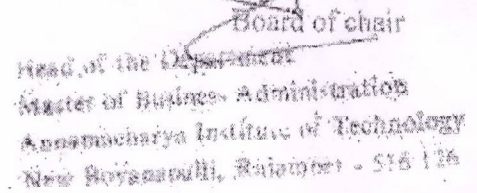 Board of chair
Head of the Department
Master of Business Administration
Annamacharya Institute of Technology
New Boyanapalli, Rajampet - 516 126